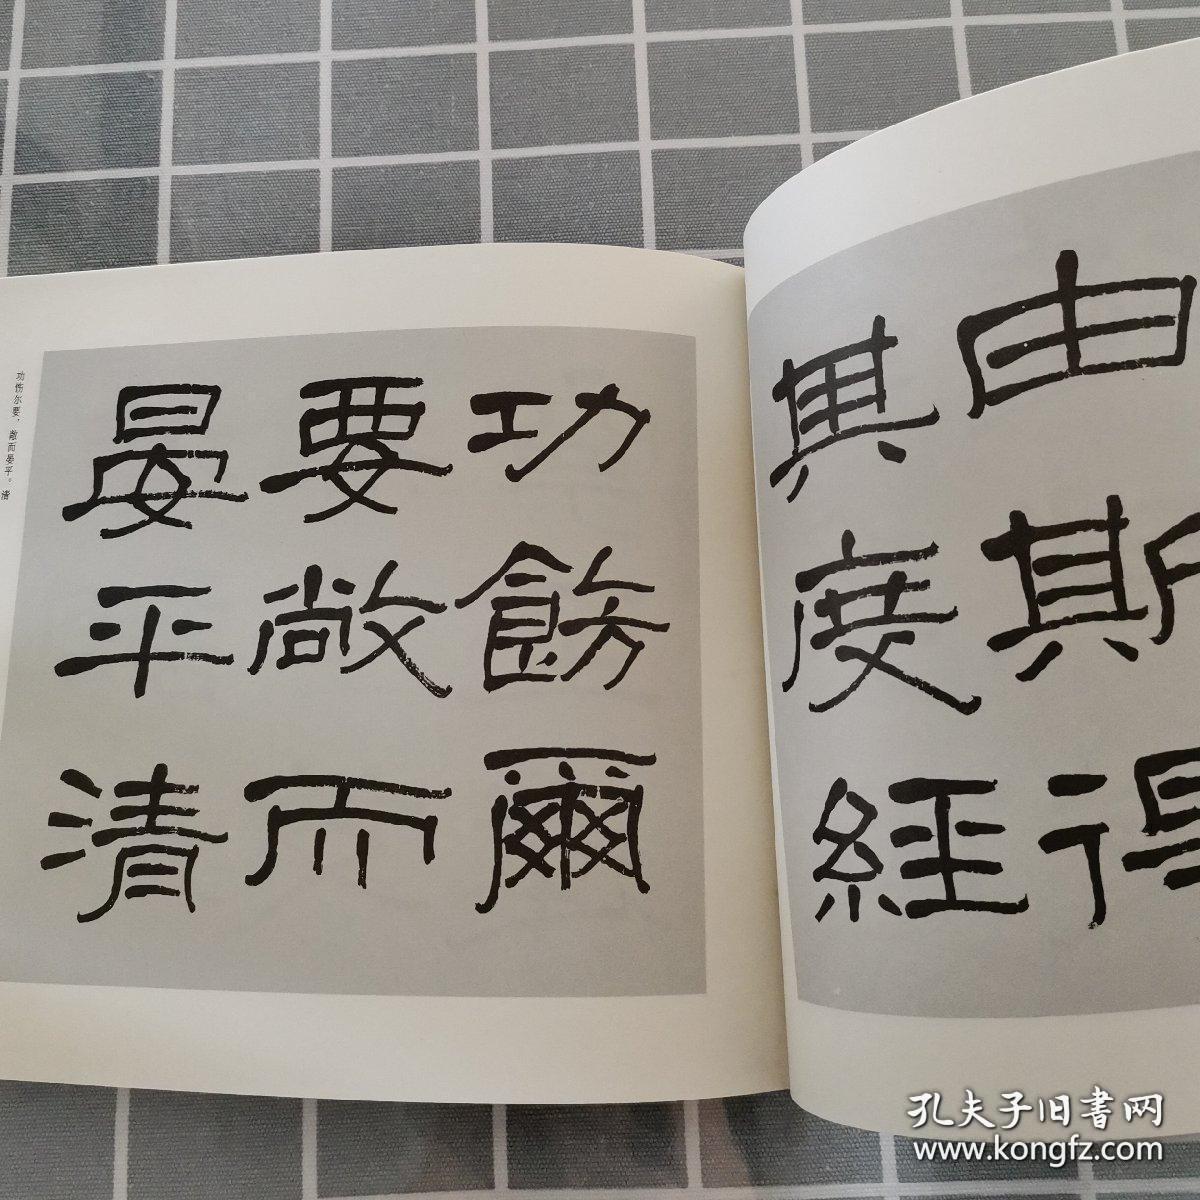 由斯得
其度經
功飭爾
要敞而
晏平清
功饬尔要，敞而晏平。清
孔夫子旧書网
www.kongfz.com